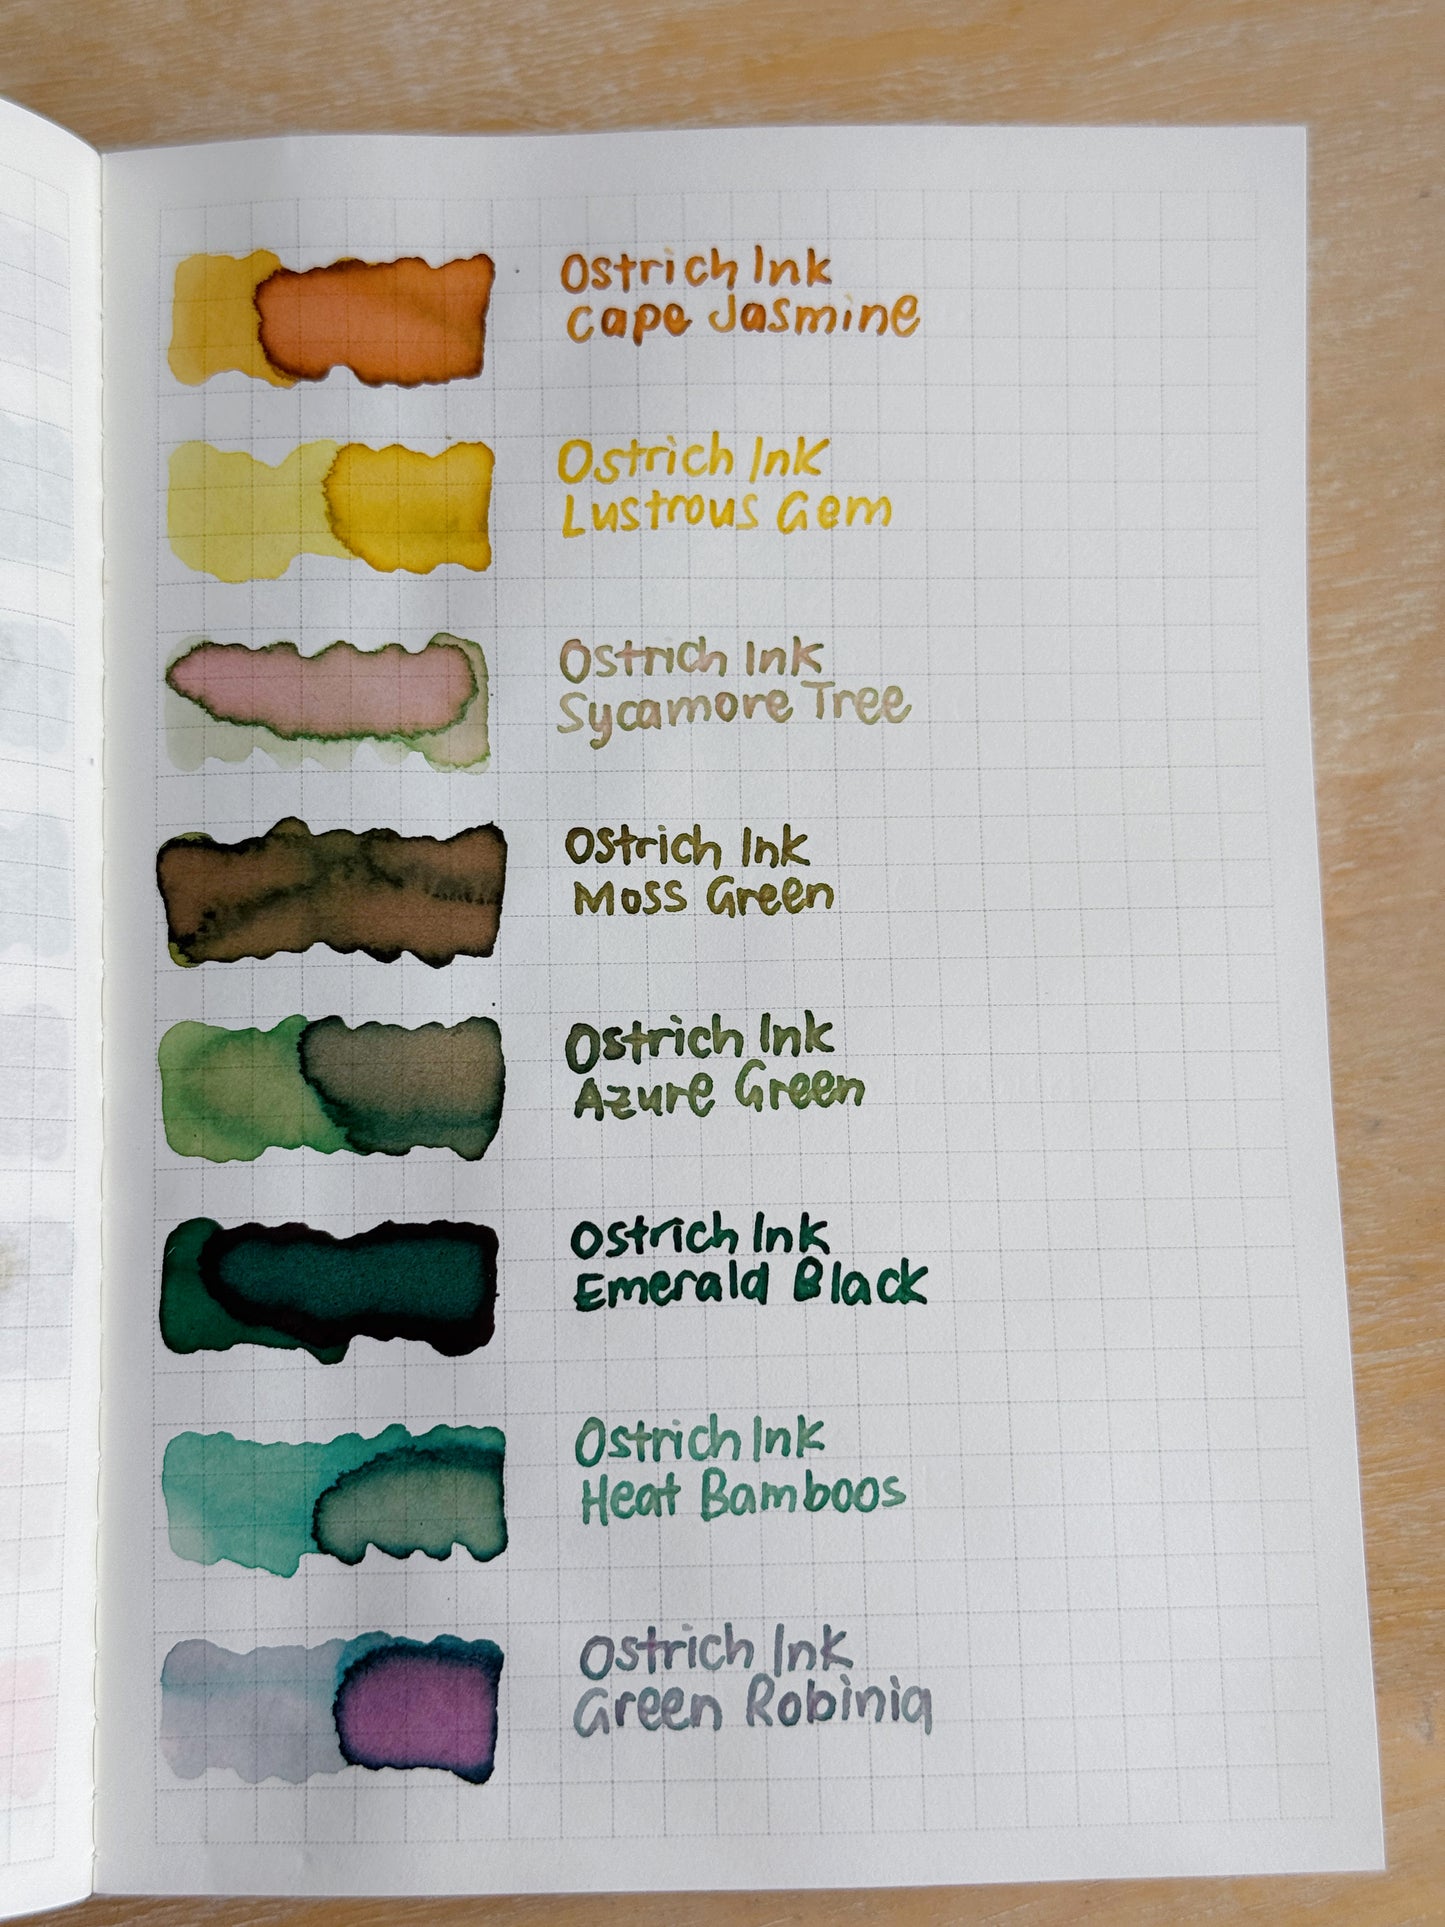 Ostrich Ink
Cape Jasmine
Ostrich Ink
Lustrous Gem
Ostrich Ink
Sycamore Tree
Ostrich Ink
Moss Green
Ostrich Ink
Azure Green
Ostrich Ink
Emerald Black
Ostrich Ink
Heat Bamboos
Ostrich Ink
Green Robinia